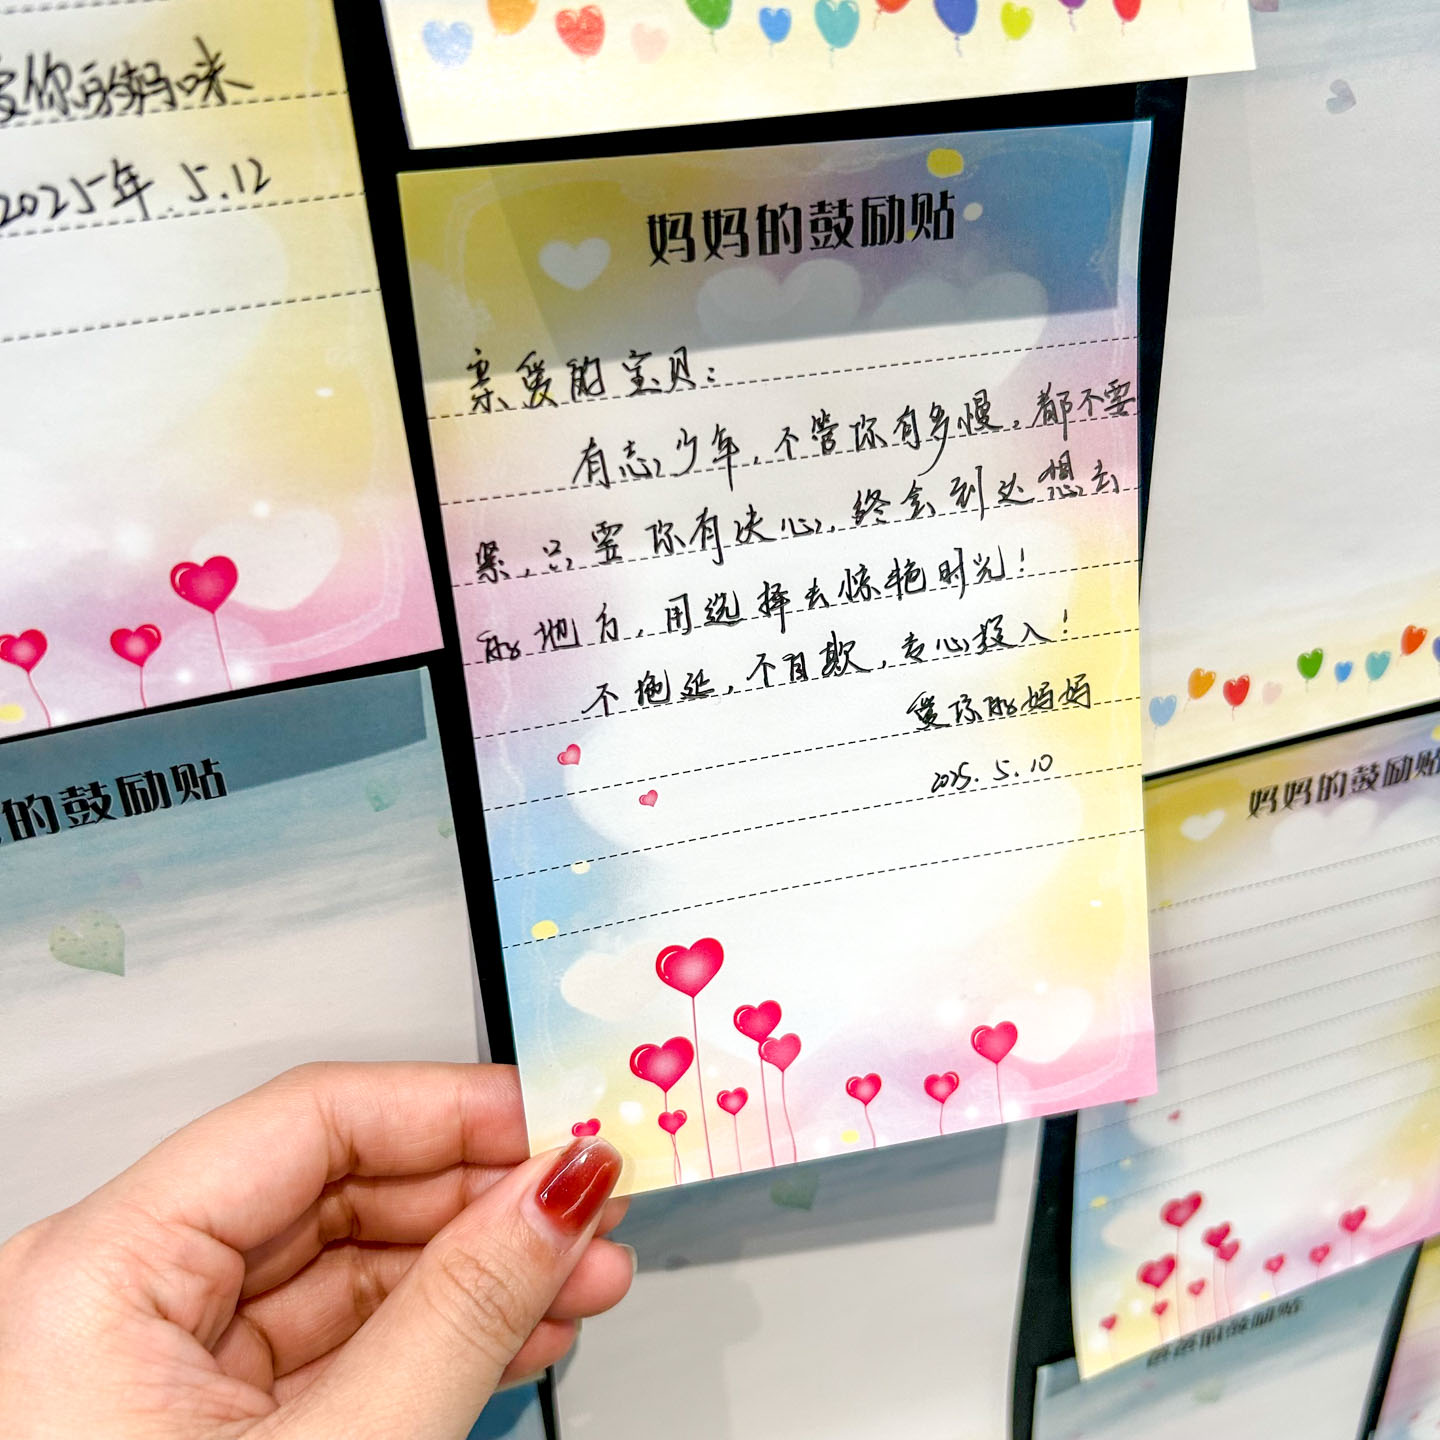 你的妈咪
2025年.5.12
妈妈的鼓励贴
亲爱的宝贝：
有志少年，不管你有多慢，都不要
紧，只要你有决心，终会到达想去
的地方，用选择去惊艳时光！
不拖延，不自欺，专心投入！
爱你的妈妈
2025.5.10
的鼓励贴
妈妈的鼓励贴